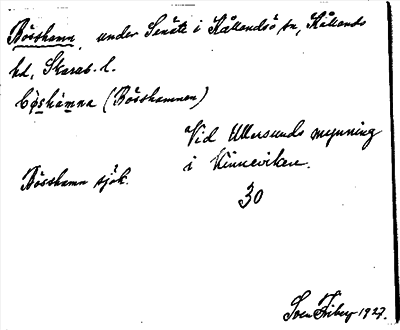 Bösshamn, under Senäte i Kållandsö sn, Kållands
hd, Skarab. l.
(Bösshamnen)
Vid Ullersunds mynning
i Kinneviken.
Bösshamn sjök.
30
Sven Friberg 1927.